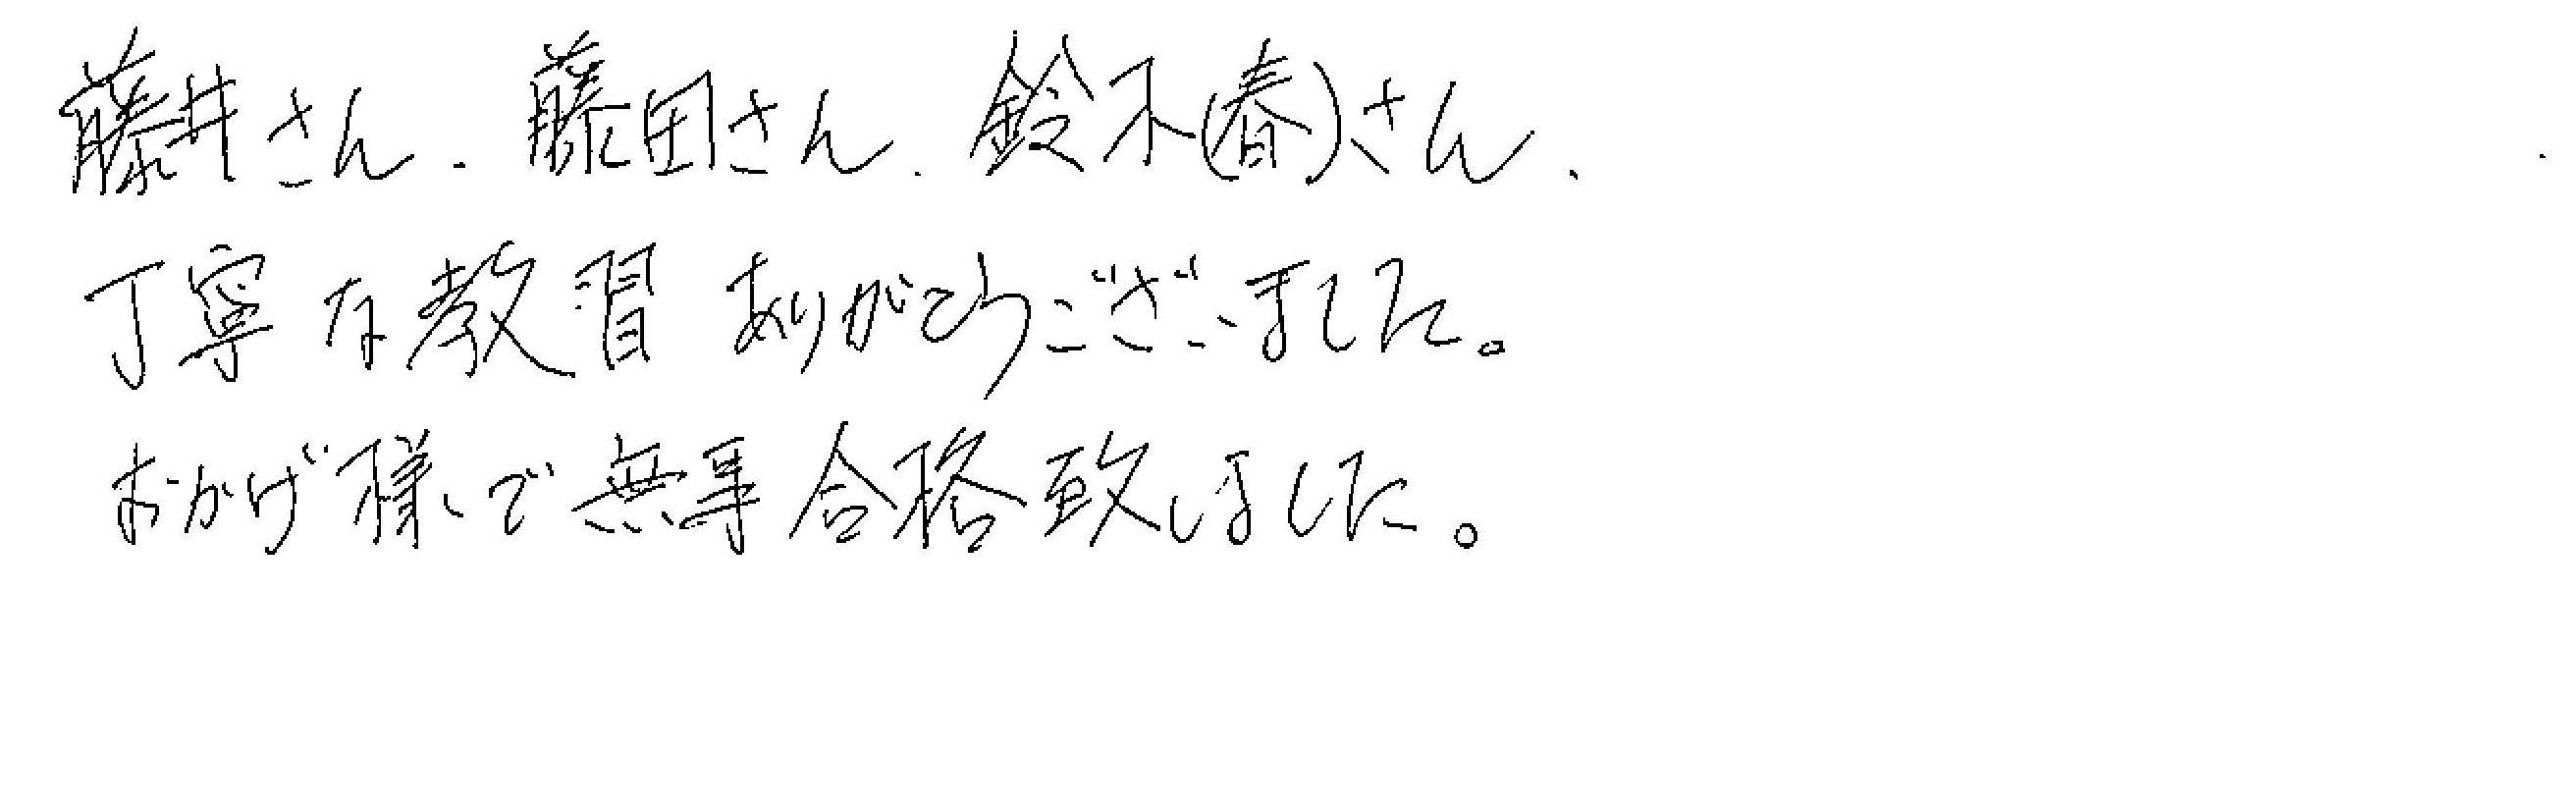 藤井さん、藤田さん、鈴木(春)さん、
丁寧な教習ありがとうございました。
おかげ様で無事合格致しました。